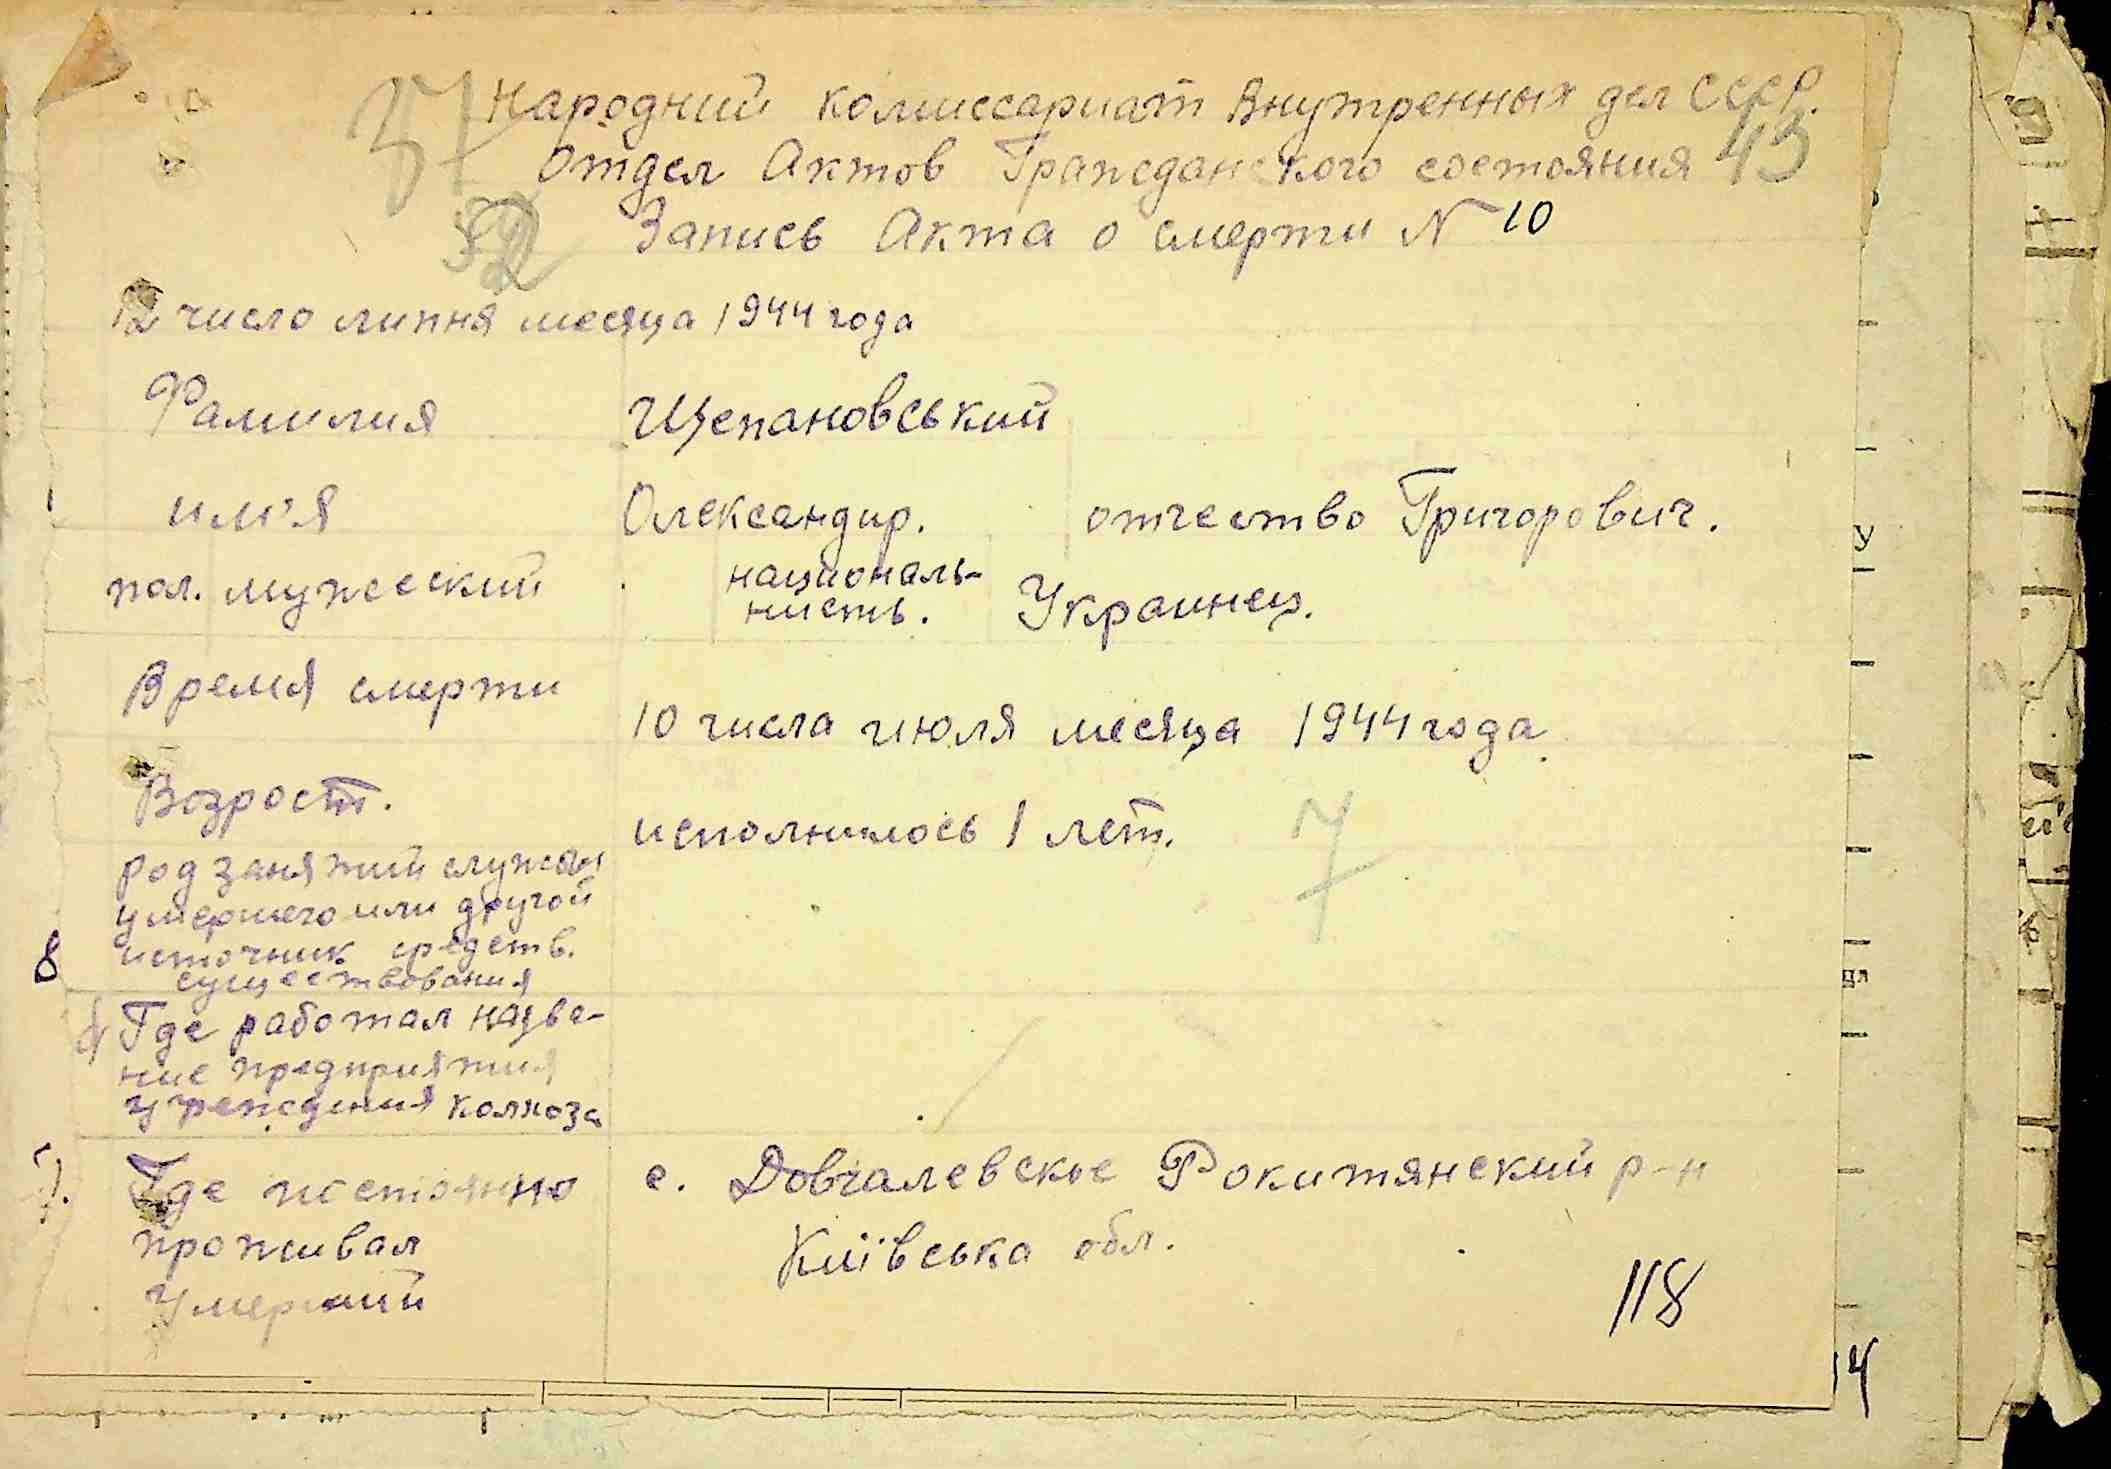 37 Народний комиссариат Внутренных дел СССР.
отдел Актов Гражданского состояния 43
52 Запись Акта о смерти N 10
12 число липня месяца 1944 года
Фамилия Щепановський
им'я Олександир. отчество Григорович.
пол. мужеский националь-
нисть. Украинец.
Время смерти
10 числа июля месяца 1944 года.
Возрост.
исполнилось 1 лет. 7
род занятий службы
умершего или другой
источник средств.
8
существования
Где работал назва-
ние предприятия
учреждения колхоза
Где постоянно с. Довгалевское Рокитянский р-н
проживал Київська обл.
Умерший
118
14